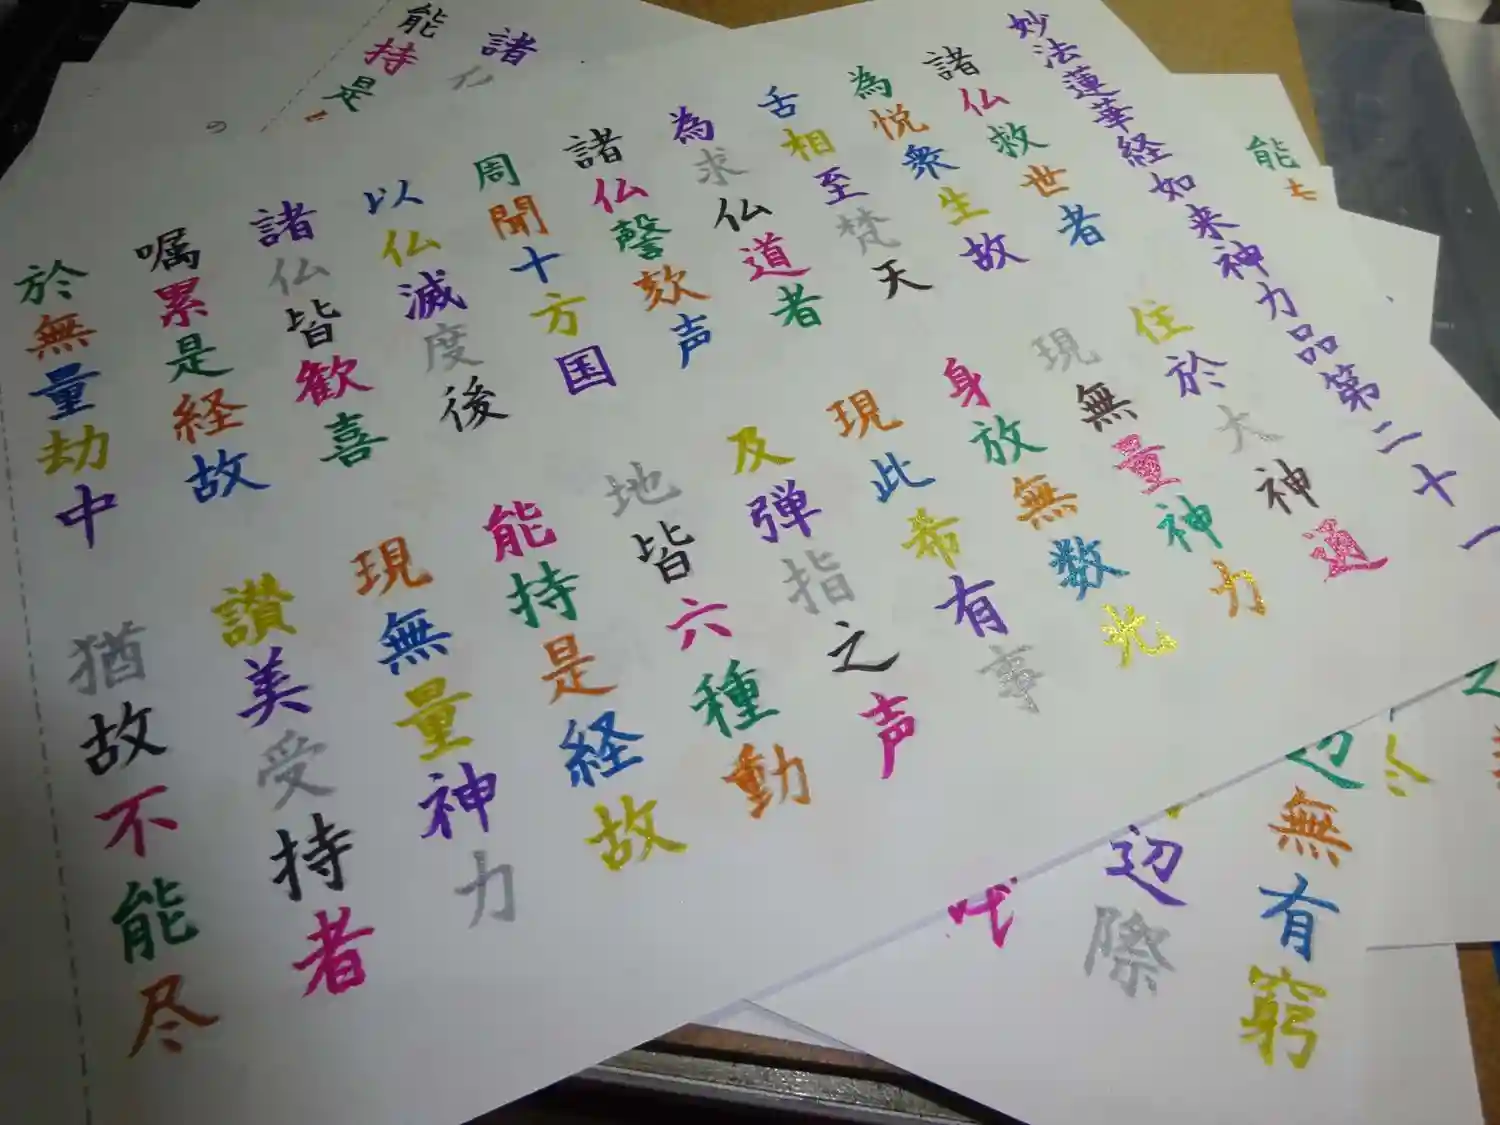 妙法蓮華経如来神力品第二十一
諸仏救世者
住於大神通
為悦衆生故
現無量神力
舌相至梵天
身放無数光
為求仏道者
現此希有事
諸仏謦欬声
及弾指之声
周聞十方国
地皆六種動
以仏滅度後
能持是経故
諸仏皆歓喜
現無量神力
嘱累是経故
讃美受持者
於無量劫中
猶故不能尽
能持是
諸
能
無有窮
辺際